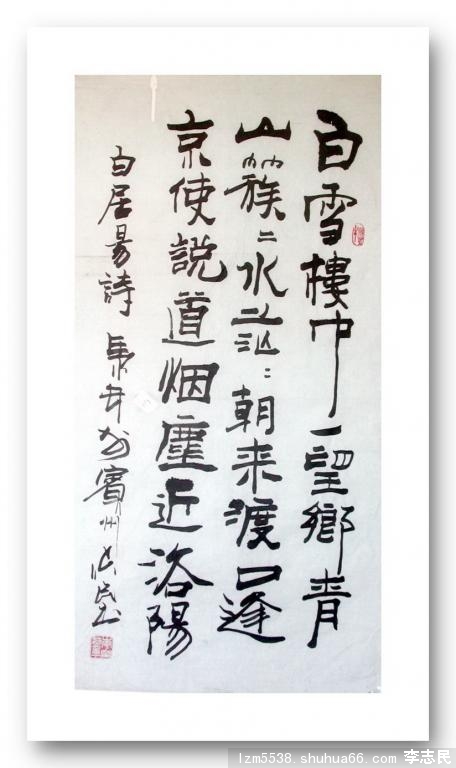 白雪樓中一望鄉青
山簇〻水茫〻朝来渡口逢
京使說道烟塵近洛陽
白居易詩 賓州
lzm5538.shuhua66.com 李志民